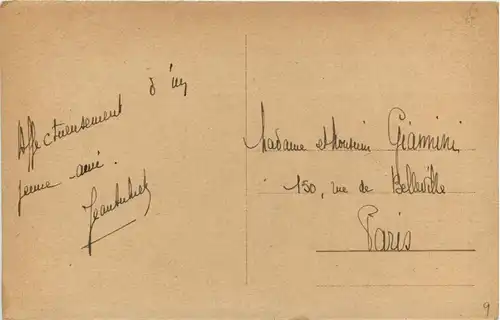 Affectueusement d'un
jeune ami.
Madame et Monsieur Giannini
150, rue de Belleville
Paris
9